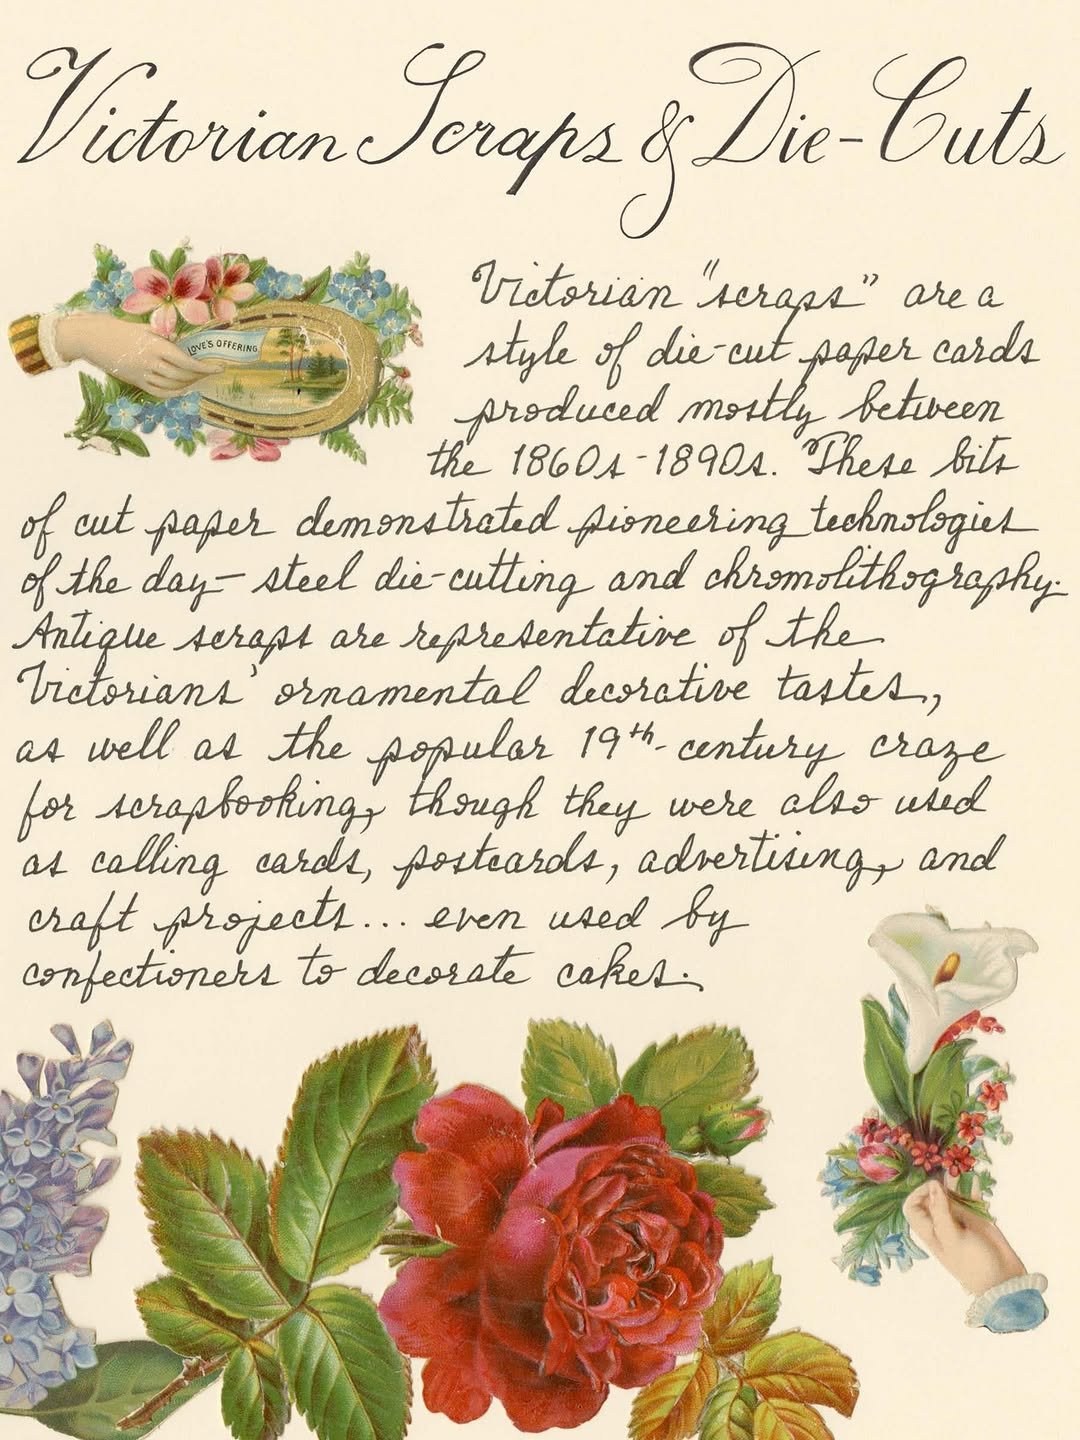 Victorian Scraps & Die-Cuts
LOVE'S OFFERING
Victorian "scraps" are a
style of die-cut paper cards
produced mostly between
the 1860s-1890s. These bits
of cut paper demonstrated pioneering technologies
of the day— steel die-cutting and chromolithography.
Antique scraps are representative of the
Victorians' ornamental decorative tastes,
as well as the popular 19th-century craze
for scrapbooking, though they were also used
as calling cards, postcards, advertising, and
craft projects... even used by
confectioners to decorate cakes.